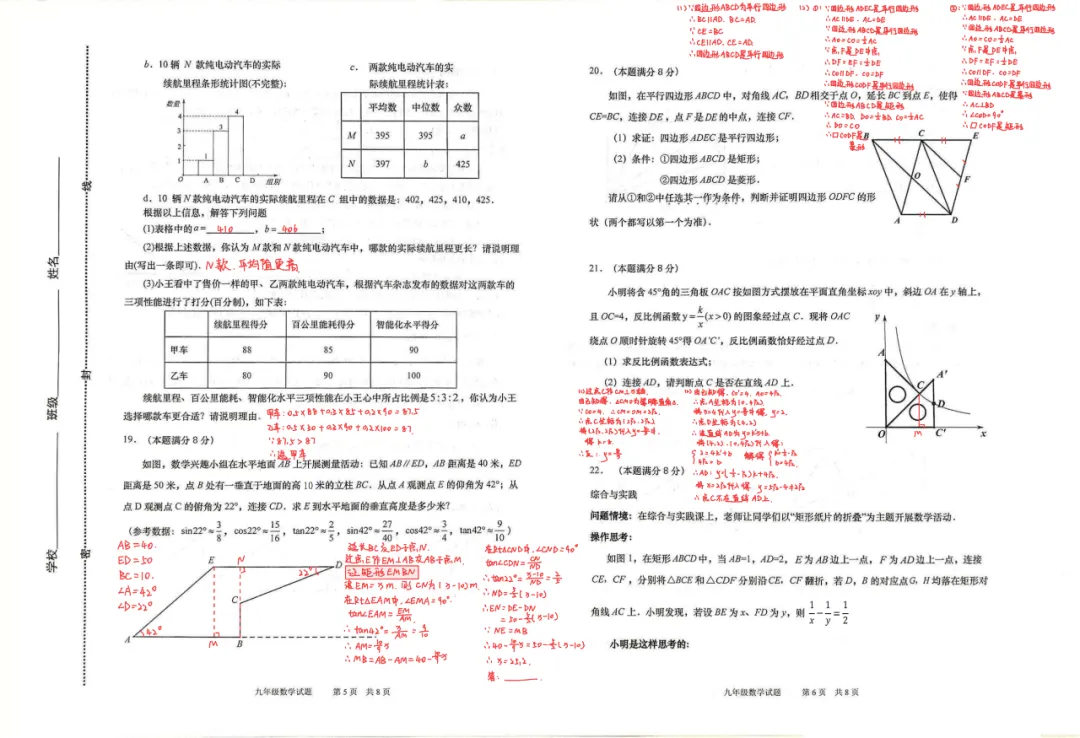 学校 班级 姓名
密 封 线
b．10辆 N 款纯电动汽车的实际
续航里程条形统计图(不完整)：
数量
4
3
2
1
1
3
4
O A B C D 组别
c． 两款纯电动汽车的实
际续航里程统计表：
平均数 中位数 众数
M 395 395 a
N 397 b 425
d．10 辆 N 款纯电动汽车的实际续航里程在 C 组中的数据是：402，425，410，425.
根据以上信息，解答下列问题
(1)表格中的a= 410 ，b= 406 ；
(2)根据上述数据，你认为 M 款和 N 款纯电动汽车中，哪款的实际续航里程更长？请说明理
由(写出一条即可). N款，平均值更高
(3)小王看中了售价一样的甲、乙两款纯电动汽车，根据汽车杂志发布的数据对这两款车的
三项性能进行了打分(百分制)，如下表：
续航里程得分 百公里能耗得分 智能化水平得分
甲车 88 85 90
乙车 80 90 100
续航里程、百公里能耗、智能化水平三项性能在小王心中所占比例是5:3:2，你认为小王
选择哪款车更合适？请说明理由.
甲车：0.5×88+0.3×85+0.2×90=87.5
乙车：0.5×80+0.3×90+0.2×100=87
∵87.5>87
∴选甲车
19．（本题满分 8 分）
如图，数学兴趣小组在水平地面 AB 上开展测量活动：已知 AB∥ED，AB 距离是 40 米，ED
距离是 50 米，点 B 处有一垂直于地面的高 10 米的立柱 BC．从点 A 观测点 E 的仰角为 42°；从
点 D 观测点 C 的俯角为 22°，连接 CD．求 E 到水平地面的垂直高度是多少米？
（参考数据：sin22°≈3/8，cos22°≈15/16，tan22°≈2/5，sin42°≈27/40，cos42°≈3/4，tan42°≈9/10）
AB=40.
ED=50
BC=10.
∠A=42°
∠D=22°
E N D
C
A 42° M B
延长BC交ED于点N.
过点E作EM⊥AB交AB于点M.
证矩形EMBN
设EM=x m. 则 CN为(x-10)m.
在Rt△EAM中，∠EMA=90°
tan∠EAM=EM/AM
∴MB=AB-AM=40-10/9x
在Rt△CND中，∠CND=90°
tan∠CDN=CN/ND
∴tan22°=x-10/ND=2/5
∴ND=5/2(x-10)
∴EN=DE-DN
=50-5/2(x-10)
∵NE=MB
∴40-10/9x=50-5/2(x-10)
∴x=25.2.
答：
九年级数学试题 第 5 页 共 8 页
(1)∵四边形ABCD为平行四边形
∴BC∥AD. BC=AD.
∵CE=BC
∴CE∥AD. CE=AD.
(2)①：∵四边形ADEC是平行四边形
∴AC∥DE. AC=DE
∵四边形ABCD是平行四边形
∴AO=CO=1/2AC
∵点F是DE中点
∴DF=EF=1/2DE
∴CO∥DF. CO=DF
∴四边形CODF是平行四边形
∵四边形ABCD是矩形
∴AC=BD. DO=1/2BD. CO=1/2AC
∴DO=CO
∴□CODF是菱形
②：∵四边形ADEC是平行四边形
∴AC∥DE. AC=DE
∵四边形ABCD是平行四边形
∴AO=CO=1/2AC
∵点F是DE中点
∴DF=EF=1/2DE
∴CO∥DF. CO=DF
∴四边形CODF是平行四边形
∵四边形ABCD是菱形
∴AC⊥BD
∴∠COD=90°
∴□CODF是矩形
20．（本题满分 8 分）
如图，在平行四边形 ABCD 中，对角线 AC，BD相交于点 O，延长 BC 到点 E，使得
CE=BC，连接 DE，点 F 是 DE 的中点，连接 CF．
（1）求证：四边形 ADEC 是平行四边形；
（2）条件：①四边形 ABCD 是矩形；
②四边形 ABCD 是菱形．
请从①和②中任选其一作为条件，判断并证明四边形 ODFC 的形
状（两个都写以第一个为准）．
B C E
O F
A D
21．（本题满分 8 分）
小明将含 45°角的三角板 OAC 按如图方式摆放在平面直角坐标 xoy 中，斜边 OA 在 y 轴上，
且 OC=4，反比例函数 y=k/x(x>0) 的图象经过点 C．现将 OAC
绕点 O 顺时针旋转 45°得 OA'C'，反比例函数恰好经过点 D．
（1）求反比例函数表达式；
（2）连接 AD，请判断点 C 是否在直线 AD 上．
y
A
A'
C
D
O M C' x
22． （本题满分 8 分）
综合与实践
问题情境：在综合与实践课上，老师让同学们以“矩形纸片的折叠”为主题开展数学活动．
操作思考：
如图 1，在矩形 ABCD 中，当 AB=1，AD=2，E 为 AB 边上一点，F 为 AD 边上一点，连接
CE，CF，分别将△BCE 和△CDF 分别沿 CE，CF 翻折，若 D，B 的对应点G，H 均落在矩形对
角线 AC 上．小明发现，若设 BE 为 x、FD 为 y，则 1/x-1/y=1/2
小明是这样思考的：
九年级数学试题 第 6 页 共 8 页